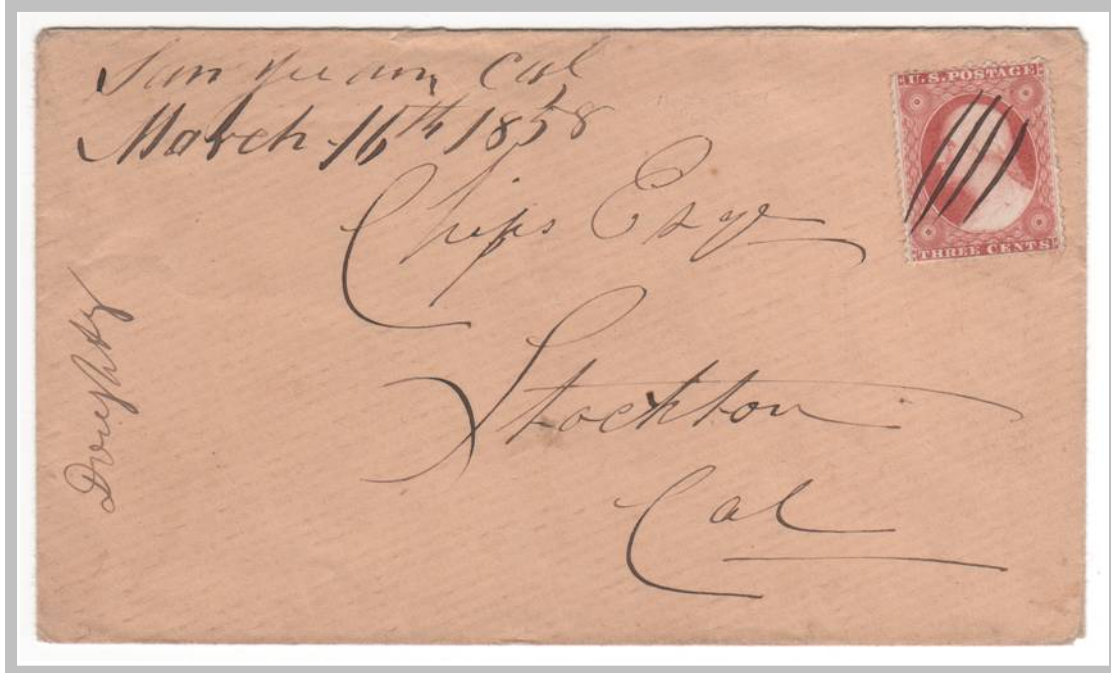 San Juan, Cal
March 16th 1858
U.S. POSTAGE
THREE CENTS
Chips Esqr
Stockton
Cal
Doughty